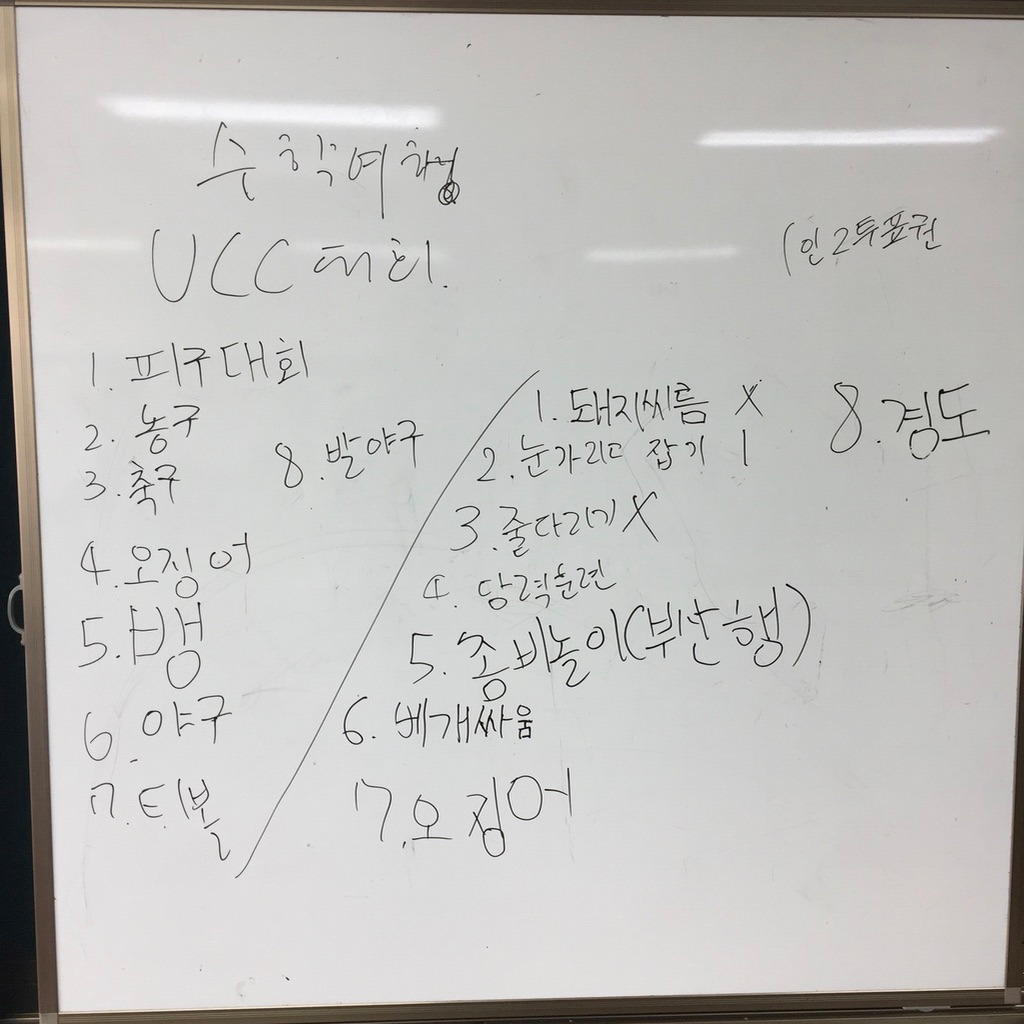 수학여행
UCC 대회.
1인 2투표권
1. 피구대회
2. 농구
3. 축구
4. 오징어
5. 뱅
6. 야구
7. 티볼
8. 발야구
1. 돼지씨름 X
2. 눈가리고 잡기 1
3. 줄다리기 X
4. 담력훈련
5. 좀비놀이(부산행)
6. 베개싸움
7. 오징어
8. 경도